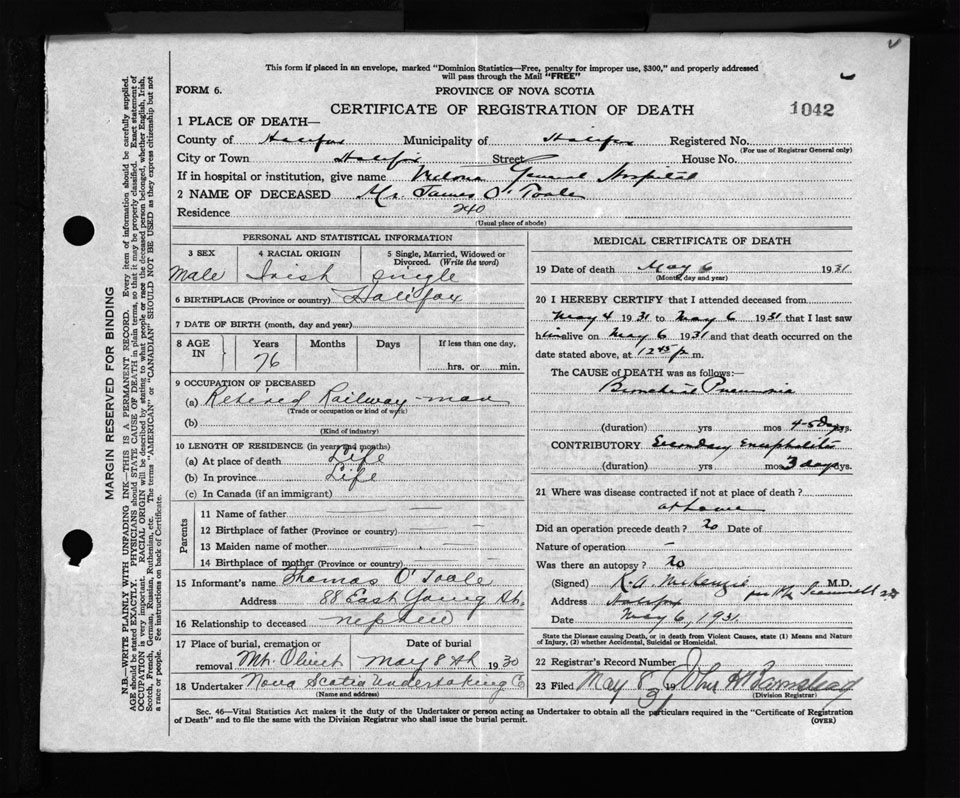 This form if placed in an envelope, marked "Dominion Statistics—Free, penalty for improper use, $300," and properly addressed
will pass through the Mail "FREE"
FORM 6.
PROVINCE OF NOVA SCOTIA
CERTIFICATE OF REGISTRATION OF DEATH
1042
1 PLACE OF DEATH—
County of Halifax Municipality of Halifax Registered No.
(For use of Registrar General only)
City or Town Halifax Street House No.
If in hospital or institution, give name Victoria General Hospital
2 NAME OF DECEASED Mr. James O'Toole
Residence 240
(Usual place of abode)
PERSONAL AND STATISTICAL INFORMATION
3 SEX 4 RACIAL ORIGIN 5 Single, Married, Widowed or Divorced. (Write the word)
Male Irish single
6 BIRTHPLACE (Province or country) Halifax
7 DATE OF BIRTH (month, day and year)
8 AGE IN Years Months Days If less than one day,
76 hrs. or min.
9 OCCUPATION OF DECEASED
(a) Retired Railway-man
(Trade or occupation or kind of work)
(b)
(Kind of industry)
10 LENGTH OF RESIDENCE (in years and months)
(a) At place of death Life
(b) In province Life
(c) In Canada (if an immigrant)
Parents
11 Name of father
12 Birthplace of father (Province or country)
13 Maiden name of mother
14 Birthplace of mother (Province or country)
15 Informant's name Thomas O'Toole
Address 88 East Young St.
16 Relationship to deceased nephew
17 Place of burial, cremation or removal Mt. Olivet Date of burial May 8th 1930
18 Undertaker Nova Scotia Undertaking Co
(Name and address)
MEDICAL CERTIFICATE OF DEATH
19 Date of death May 6 1931
(Month, day and year)
20 I HEREBY CERTIFY that I attended deceased from
May 4 1931 to May 6 1931 that I last saw
him alive on May 6 1931 and that death occurred on the
date stated above, at 12 45 p m.
The CAUSE of DEATH was as follows:—
Bronchial Pneumonia
(duration) yrs mos 4-5 days.
CONTRIBUTORY Secondary Encephalitis
(duration) yrs mos 3 days.
21 Where was disease contracted if not at place of death?
at home
Did an operation precede death? no Date of
Nature of operation —
Was there an autopsy? no
(Signed) K. A. McKenzie M.D.
Address Halifax
Date May 6, 1931.
State the Disease causing Death, or in death from Violent Causes, state (1) Means and Nature
of Injury, (2) whether Accidental, Suicidal or Homicidal.
22 Registrar's Record Number
23 Filed May 8 1931 John H Barnstead
(Division Registrar)
Sec. 46—Vital Statistics Act makes it the duty of the Undertaker or person acting as Undertaker to obtain all the particulars required in the "Certificate of Registration
of Death" and to file the same with the Division Registrar who shall issue the burial permit.
(OVER)
MARGIN RESERVED FOR BINDING
N.B.—WRITE PLAINLY WITH UNFADING INK—THIS IS A PERMANENT RECORD. Every item of information should be carefully supplied.
AGE should be stated EXACTLY. PHYSICIANS should STATE CAUSE OF DEATH in plain terms, so that it may be properly classified. Exact statement of
OCCUPATION is very important. RACIAL ORIGIN will be described by stating to what people or race the deceased person belonged, whether English, Irish,
Scotch, French, German, Russian, Ruthenian, etc. The terms "AMERICAN" or "CANADIAN" SHOULD NOT BE USED as they express citizenship but not
a race or people. See instructions on back of Certificate.